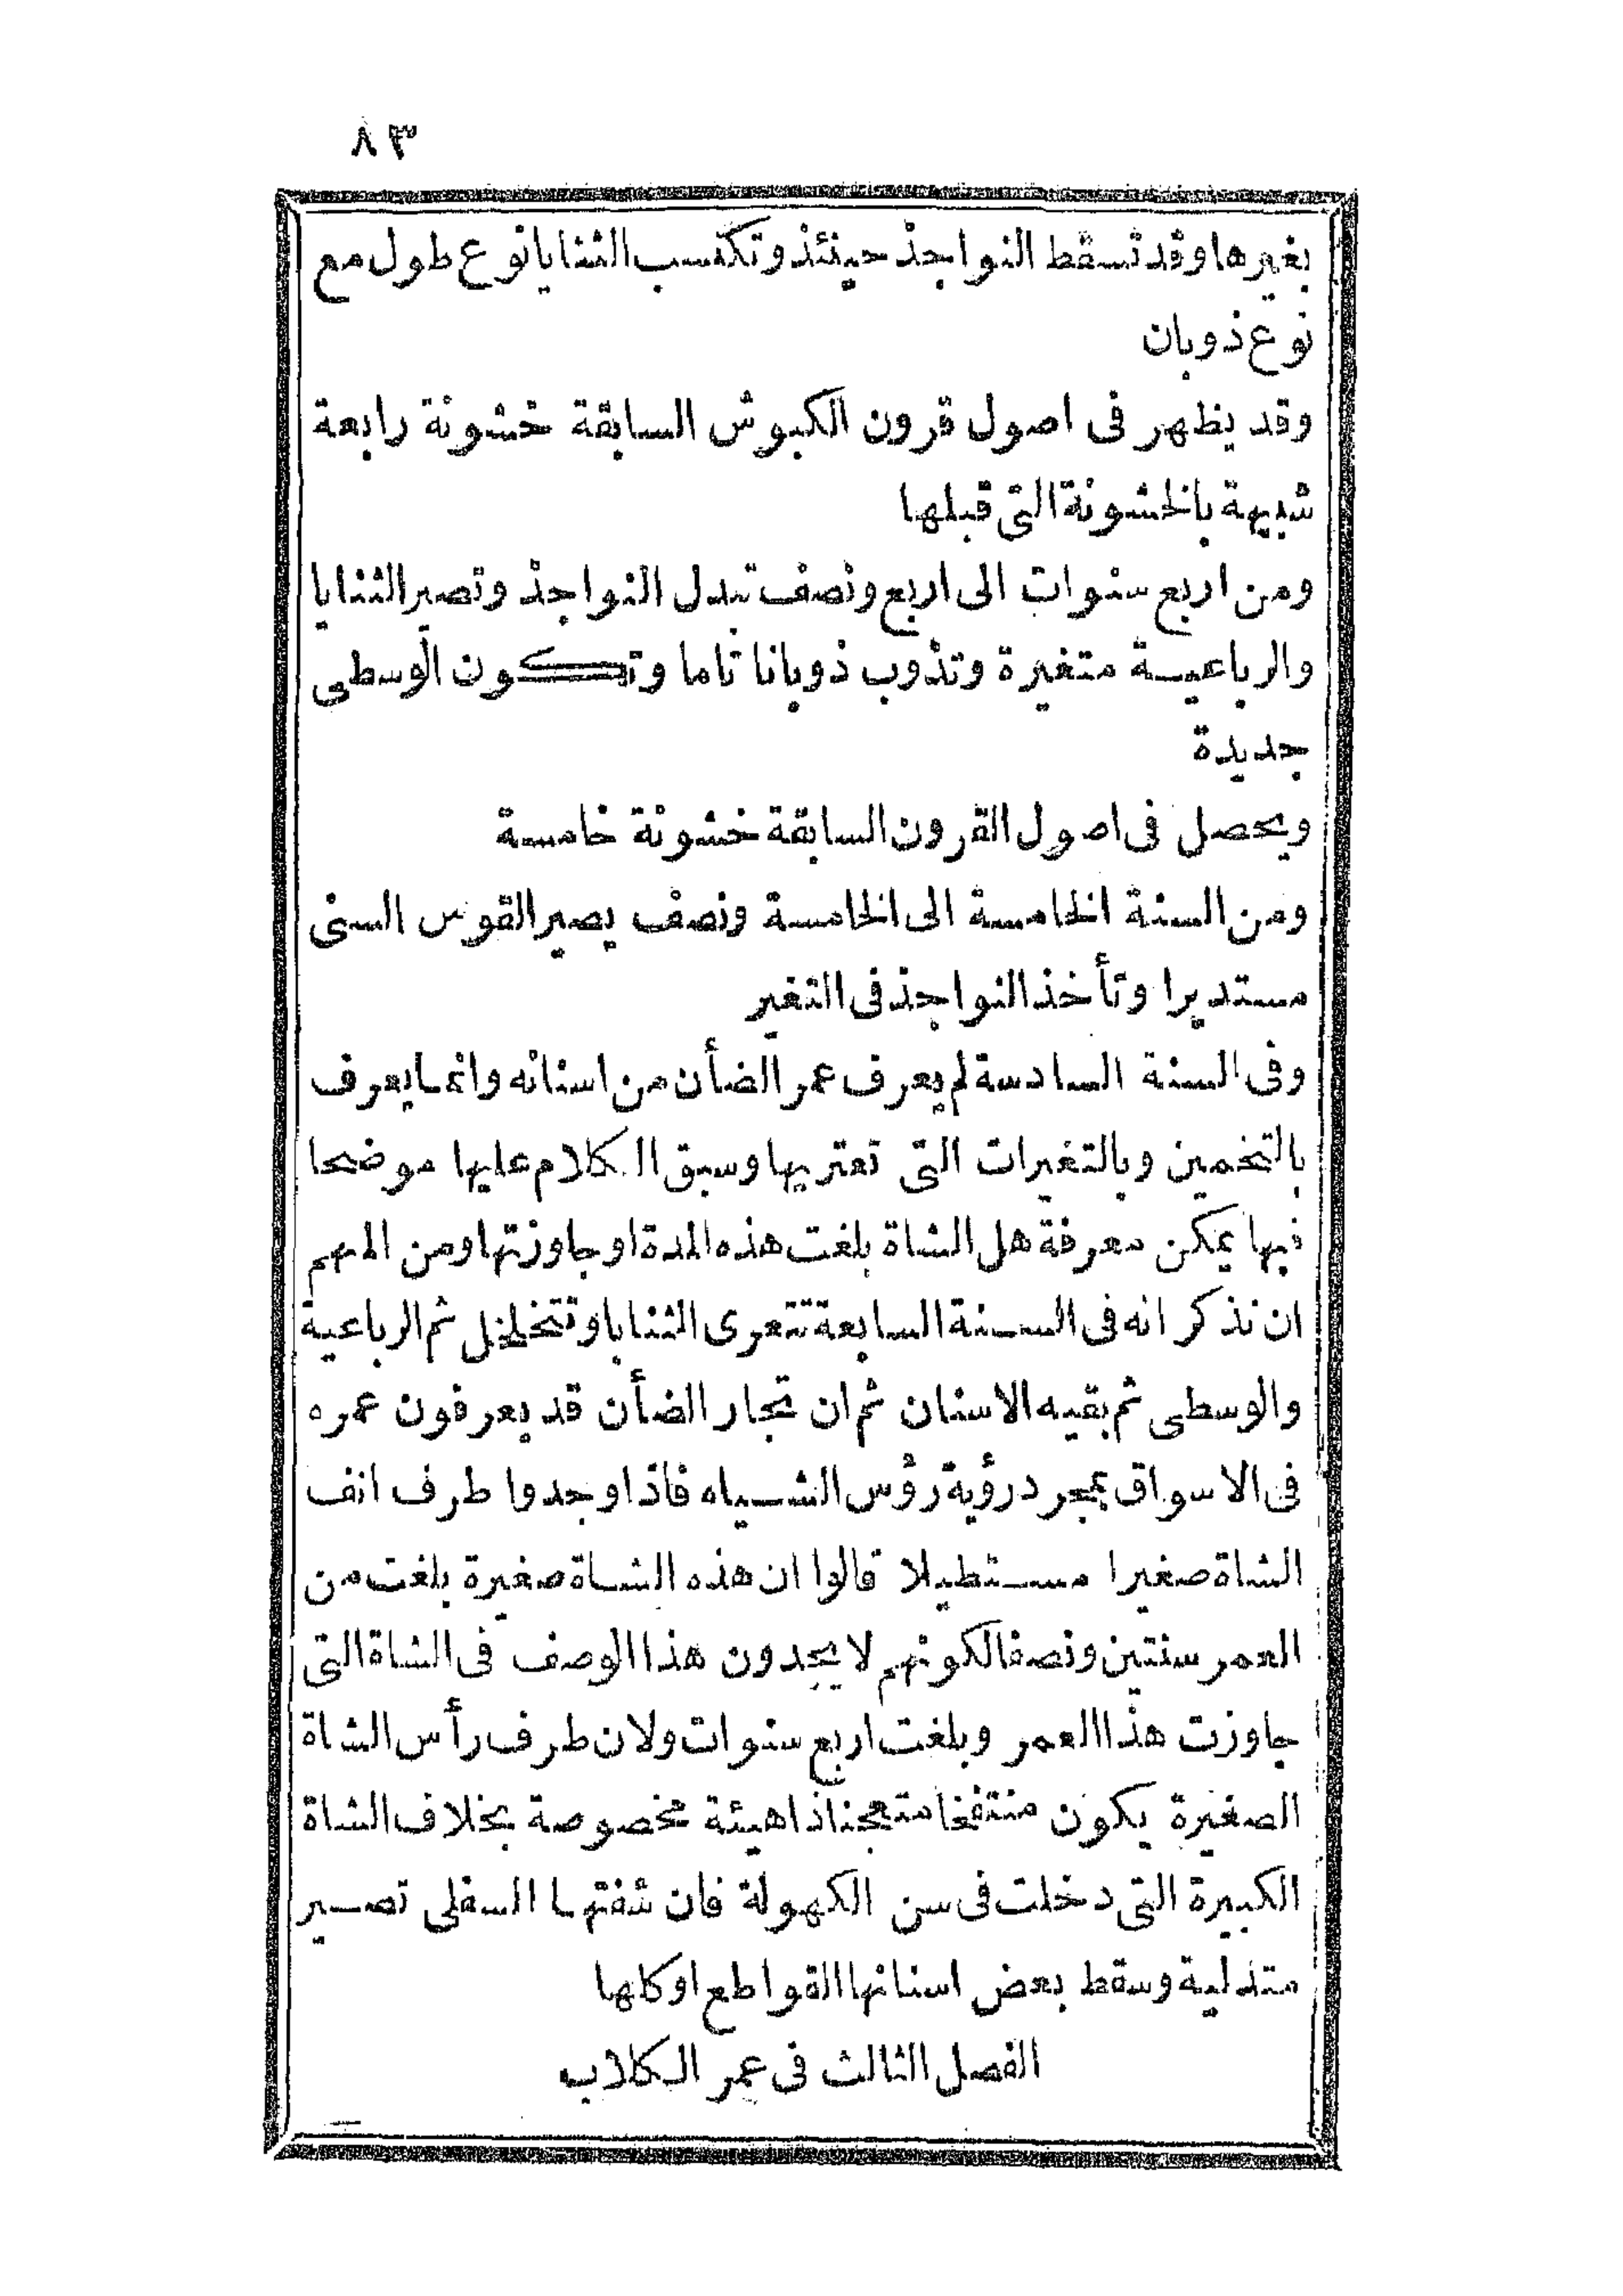 ٨٣
بغيرها وقد تسقط النواجذ حينئذ وتكتسب الثنايا نوع طول مع
نوع ذوبان
وقد يظهر فى اصول قرون الكبوش السابقة خشونة رابعة
شبيهة بالخشونة التى قبلها
ومن اربع سنوات الى اربع ونصف تبدل النواجذ وتصير الثنايا
والرباعيـة متغيرة وتذوب ذوبانا تاما وتكون الوسطى
جديدة
ويحصل فى اصول القرون السابقة خشونة خامسة
ومن السنة الخامسة الى الخامسة ونصف يصير القوس السنى
مستديرا وتأخذ النواجذ فى التغير
وفى السنة السادسة لم يعرف عمر الضأن من اسنانه وانما يعرف
بالتخمين وبالتغيرات التى تعتريها وسبق الكلام عليها موضحا
فبها يمكن معرفة هل الشاة بلغت هذه المدة او جاوزتها ومن المهم
ان نذكر انه فى السنة السابعة تتعرى الثنايا وتتخلخل ثم الرباعية
والوسطى ثم بقيه الاسنان ثم ان تجار الضأن قد يعرفون عمره
فى الاسواق بمجرد رؤية رؤس الشياه فاذا وجدوا طرف انف
الشاة صغيرا مستطيلا قالوا ان هذه الشاة صغيرة بلغت من
العمر سنتين ونصفا لكونهم لا يجدون هذا الوصف فى الشاة التى
جاوزت هذا العمر وبلغت اربع سنوات ولان طرف رأس الشاة
الصغيرة يكون منتفخا متعجنا ذا هيئة مخصوصة بخلاف الشاة
الكبيرة التى دخلت فى سن الكهولة فان شفتها السفلى تصير
متدلية وسقط بعض اسنانها القواطع او كلها
الفصل الثالث فى عمر الكلاب